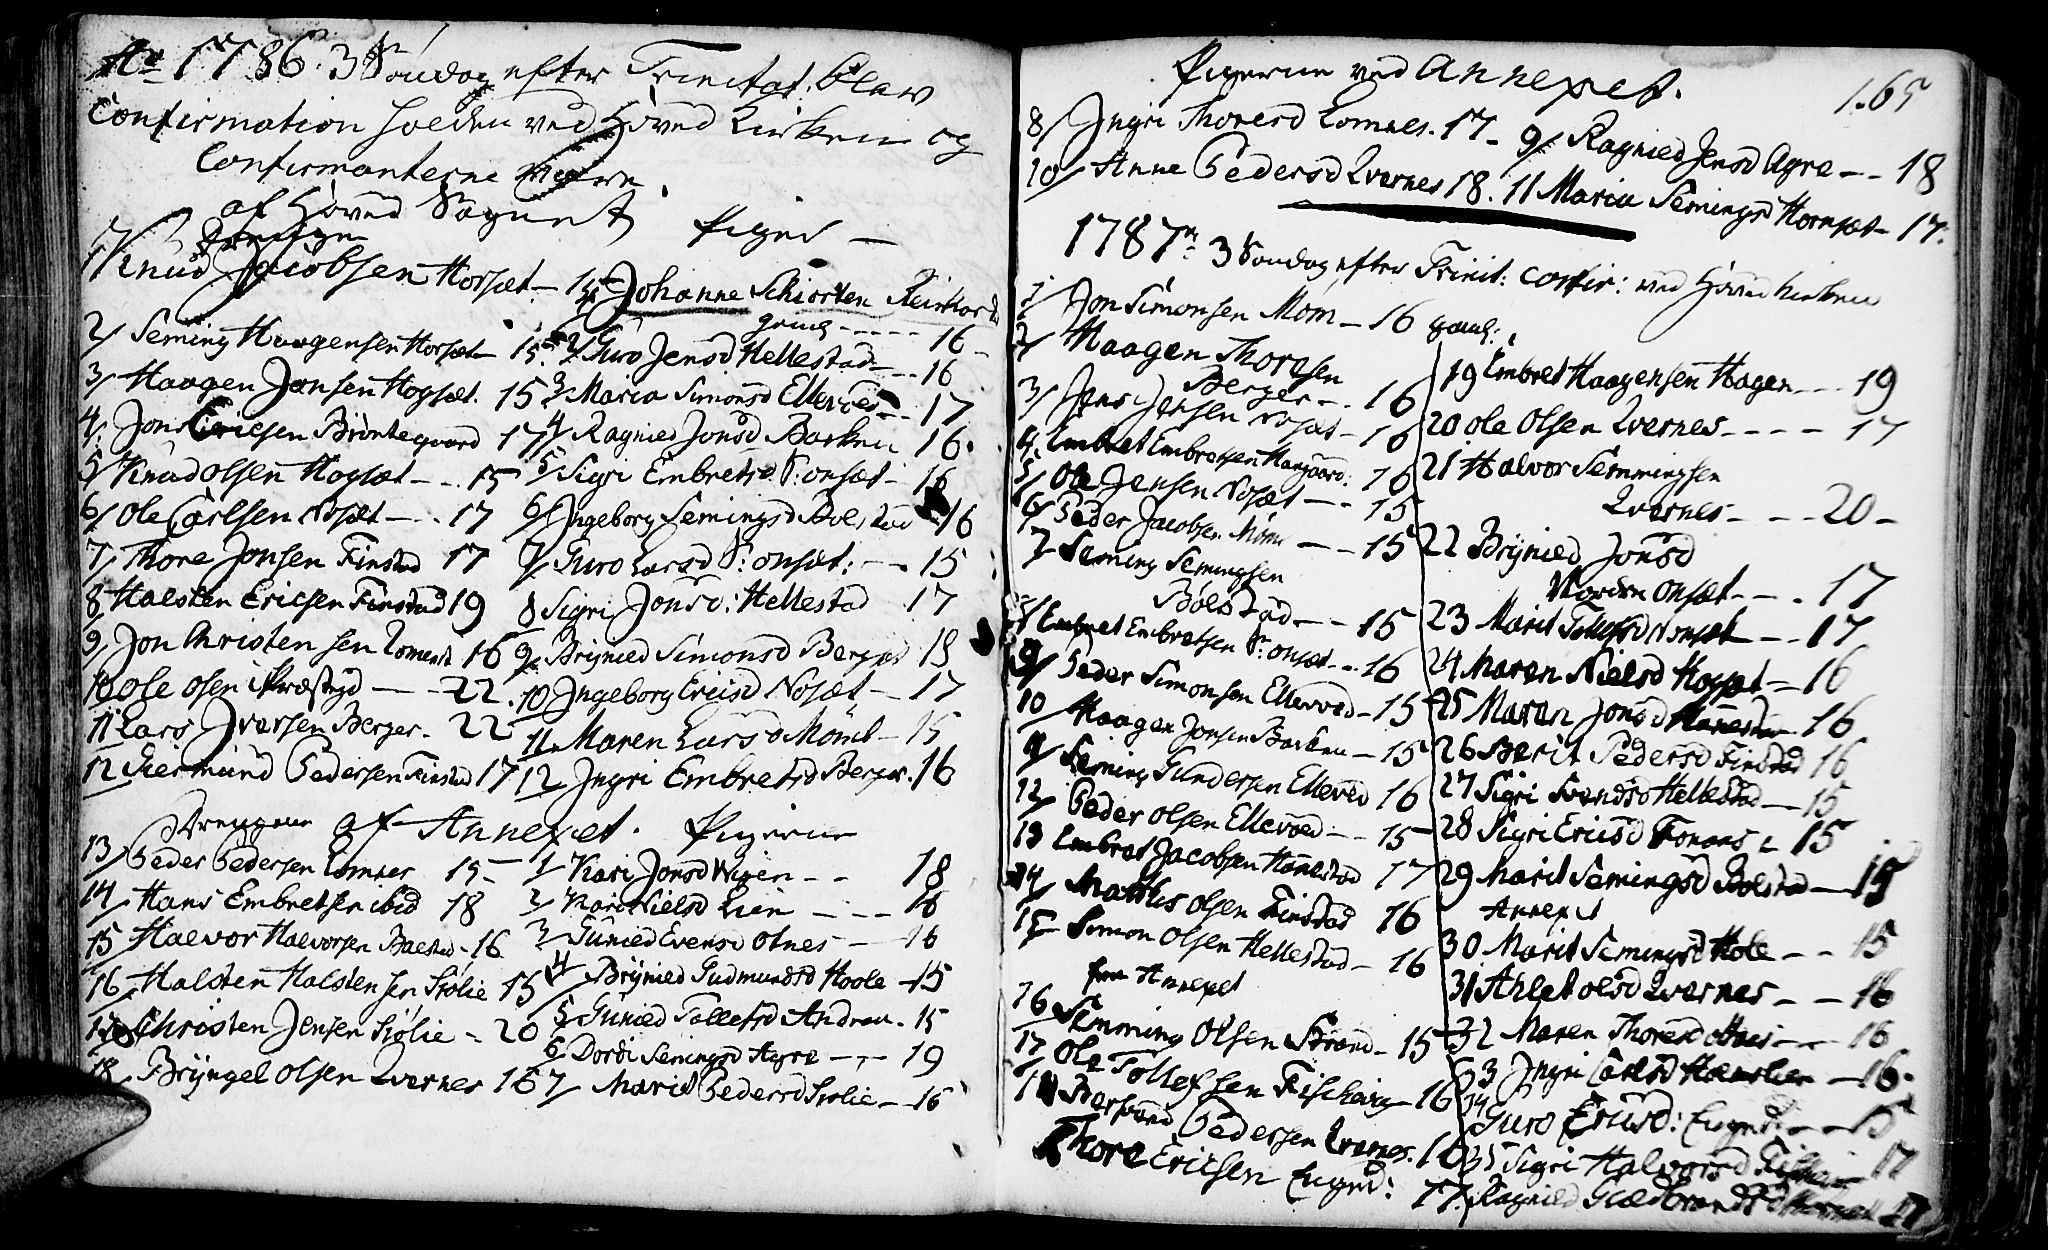 Ao 1786. 3 Søndag efter Trinitat. blev
Confirmation holden ved Hoved Kirken og
Confirmanterne vare
af Hoved Sognet
Drenge
Piger
1/ Knud Jacobsen Horset - 15
2/ Seming Haagensen Horset 15
3/ Haagen Jonsen Hogset. 15
4/ Jon Ericsen Brøntegaard 17
5/ Knud Olsen Hogset - - 15
6/ Ole Carlsen Nosæt - - 17
7/ Thore Jonsen Finstad 17
8 Halsten Ericsen Finstad 19
9/ Jon Christensen Lomnes 16
10 Ole Olsen i Præstegd - - 22
11 Lars Iversen Berger - 22
12 Siermund Pedersen Finstad 17
1/ Johanne Schiorten
gml - - - - 16
2/ Guro Jensd Hellestad - - 16
3/ Maria Simonsd Ellevoed - - 17
4/ Ragnied Jonsd Barken 16
5/ Sigri Embretsd S: onsæt - 16
6/ Ingeborg Semingsd Bolstad 16
7/ Guro Larsd S: onsæt: - - 15
8 Sigri Jonsd: Hellestad 17
9/ Brynied Simonsd Berger 18
10/ Ingeborg Ericsd Nosæt - 17
11 Maren Larsd Momb - 15
12/ Ingri Embretsd Berger. 16
Drengene af Annexet. Pigerne
13/ Peder Pedersen Lomnes 15 -
14/ Hans Embretsen ibid 18
15 Halvor Halvorsen Bolstad - 16
16 Halsten Halstensen Siølie 15
17 Christen Jensen Siølie - 20
18 Bryngel Olsen Qvernes 16
1/ Kari Jonsd Wigen - - 18
2/ Kari Nielsd Lien - - - 16
3/ Gunied Evensd Otnes - 16
4/ Brynied Gudmundsd Hoole - 15
5 Gunied Tollefsd Andraa - 15
6 Dordi Semingsd Agre - - 19
7/ Marit Pedersd Siolie - 16
Pigerne ved Annexet.
165
8/ Ingri Thoresd Lomnes. 17 - 9/ Ragnied Jensd Agre - - 18
10/ Anne Pedersd Qvernes 18. 11 Maria Semingsd Hornset - 17.
1787. 3 Søndag efter Trinit: confir: ved Hoved kirken
1/ Jon Simonsen Mom - 16 gaml:
2/ Haagen Thoresen
Berger - - 16
3/ Jens Jensen Nosæt - 16
4 Embret Embretsen Haugaard: 16
5/ Ole Jensen Nosæt - - 15
6/ Peder Jacobsen Mom - - 15
7 Seming Semingsen
Bolstad - - 15
8/ Embret Embretsen S: onsæt - - 16
9/ Peder Simonsen Ellevoed - 15
10 Haagen Jonsen Barken - 15
11 Seming Gundersen Ellevoed 16
12 Peder Olsen Ellevoed - - 15
13 Embret Jacobsen Hanestad 17
14 Matthis Olsen Finstad 16
15 Simon Olsen Hellestad - 16
fra Annexet
16 Semming Olsen Strand - 15
17 Ole Tollefsen Fischvig - 16
18 Pedersen Qvernes. 16
Thore Ericsen Eugnd: 17
19 Embret Haagensen Hagen - - 19
20 Ole Olsen Qvernes - - - - 17
21 Halvor Semmingsen
Qvernes - - - 20 -
22 Brynied Jonsd
Norden onsæt - - - 17
23 Marit Tollefsd Nonsæt - - 17
24 Maren Nielsd Hogset - 16
25 Maren Jonsd Hanestad 16
26 Berit Pedersd Finstad 16
27 Sigri Svendsd Hellestad - 15
28 Sigri Ericsd Fonaas - 15
29 Marit Semingsd Bolstad - 15
Annexet
30 Marit Semingsd Hole - - 15
31 Ahlet Olsd Qvernes - - 16
32 Maren Thoresd Moes - - 16
33 Ingri Carlsd - 16
34 Guro Ericsd: Eugnd: - - 15
35 Sigri Halvorsd - 17
Ragnied Guldbrandsd 17